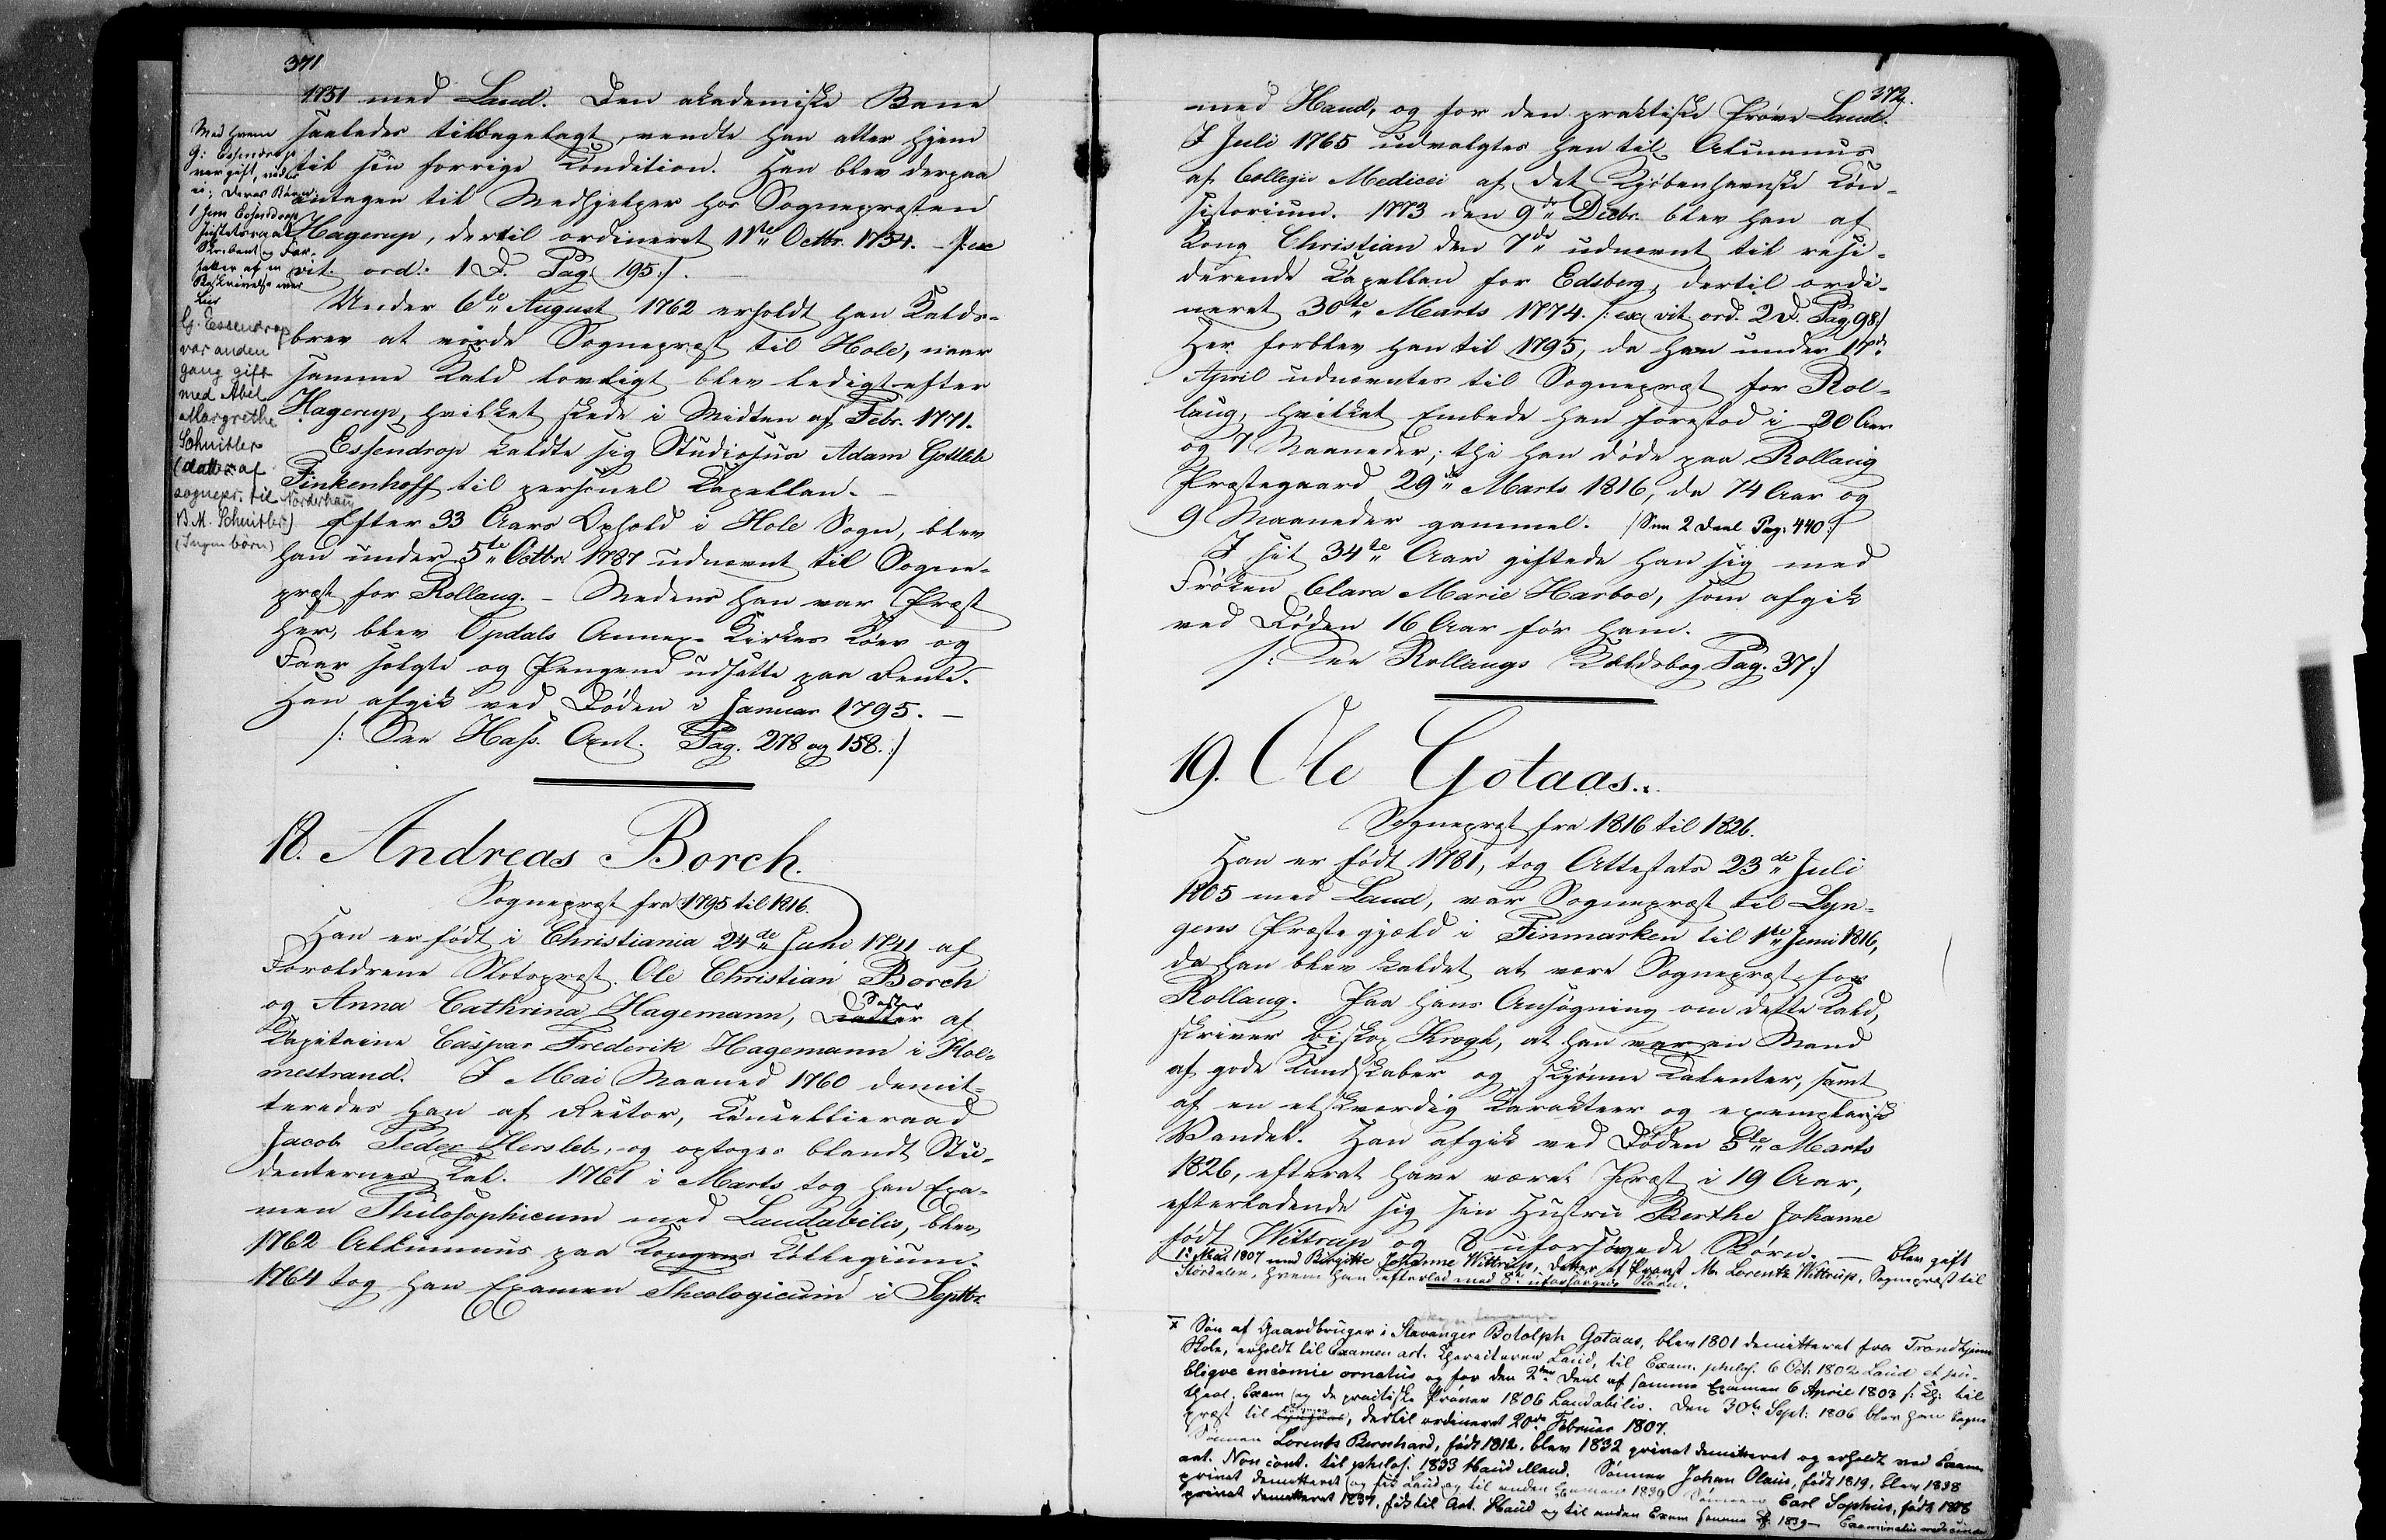 371
1751 med Laud. Den akademiske Bane
saaledes tilbagelagt, vendte han atter hjem
til sin forrige Kondition. Han blev derpaa
antagen til Medhjelper hos Sognepresten
Hagerup, dertil ordineret 11te Octbr. 1754. – /: exc
vit. ord. 1 D. Pag. 195 :/. –
Under 6te August 1762 erholdt han Kalds-
brev at vorde Sognepræst til Hole, naar
samme Kald lovligt blev ledigt efter
Hagerup, hvilket skede i Midten af Febr. 1771.
Essendrop kaldte sig Studiosus Adam Gottlieb
Finkenhoff til personel Kapellan. –
Efter 33 Aars Ophold i Hole Sogn, blev
han under 5te Octbr. 1787 udnævnt til Sogne-
præst for Rollaug. – Medens han var Præst
her, blev Opdals Annex-Kirkes Køer og
Faar solgte og Pengene udsatte paa Rente.
Han afgik ved Døden i Januar 1795. –
/: See Hass. Ant. Pag. 278 og 158. :/
Med hvem
G: Essendrop
var gift, vides
ei; Deres Børn:
1 Jens Essendrop
Justitsraad
Skribent og For-
fatter af en
Beskrivelse over
Lier
G. Essendrop
var anden
gang gift
med Abel
Margrethe
Schnitler
(datter af
sognepr. til Norderhaug
B. M. Schnitler)
(Ingen børn)
18. Andreas Borch.
Sognepræst fra 1795 til 1816.
Han er født i Christiania 24de Juni 1741 af
Forældrene Slotspræst Ole Christian Borch
og Anna Cathrina Hagemann, Datter Søster af
Kapitaine Caspar Frederik Hagemann i Hol-
mestrand. I Mai Maaned 1760 demit-
teredes han af Rector, Cancellieraad
Jacob Peder Hersleb, og optoges blandt Stu-
denternes Tal. 1761 i Marts tog han Exa-
men Philosophicum med Laudabilis, blev
1762 Allumnus paa Kongens Collegium.
1764 tog han Examen Theologicum i Septbr.
372.
med Haud, og for den praktiske Prøve Laud.
I Juli 1765 udvalgtes han til Alumnus
af Collegii Medicei af det Kjøbenhavnske Con-
sistorium. 1773 den 9de Decbr. blev han af
Kong Christian den 7de udnævnt til resi-
derende Kapellan for Edsberg, dertil ordi-
neret 30te Marts 1774. /: exc vit. ord. 2 D. Pag. 98 :/
Her forblev han til 1795, da han under 17de
April udnævntes til Sognepræst for Rol-
laug, hvilket Embede han forestod i 20 Aar
og 7 Maaneder; thi han døde paa Rollaug
Præstegaard 29de Marts 1816, da 74 Aar og
9 Maaneder gammel. /: See 2 Deel Pag. 440 :/
I sit 34te Aar giftede han sig med
Frøken Clara Marie Harboe, som afgik
ved Døden 16 Aar før ham.
/: See Rollaugs Kaldsbog Pag. 37 :/
19. Ole Gotaas.
Sognepræst fra 1816 til 1826.
Han er født 1781, tog Attestats 23de Juli
1805 med Laud, var Sognepræst til Lyn-
gens Præstegjæld i Finmarken til 1te Juni 1816,
da han blev kaldet at være Sognepræst for
Rollaug. Paa hans Ansøgning om dette Kald,
skriver Biskop Krogh, at han var en Mand
af gode Kundskaber og skjønne Talenter, samt
af en elskværdig Karakteer og exemplarisk
Vandel. Han afgik ved Døden 5te Marts
1826, efterat have været Præst i 19 Aar,
efterladende sig sin Hustru Berthe Johanne
født Wittrup og 8 uforsørgede Børn. – blev gift
1: Mai 1807 med Birgitte Johanne Wittrup, Datter af Provst M. Lorentz Wittrup, Sognepræst til
Størdalen, hvem han efterlod med 8te uforsørgede Børn.
x Søn af Gaardbruger i Stavanger Botolph Gotaas, blev 1801 demitteret fra Trondhjems
Skole, erholdt til Examen art. Charakteren Laud, til Exam. philos. 6 Oct. 1802 Laud et pu-
blique encomie ornatus og for den 2den Deel af samme Examen 6 April 1803 til
theol. Exam og de practiske Prøver 1806 Laudabilis. Den 30te Sept. 1806 blev han Sogne-
præst til Lyngen, dertil ordineret 20de Februar 1807.
Sønnen Lorents Bernhard, født 1812, blev 1832 privat demitteret og erholdt ved Examen
art. Non cont. til philos. 1833 Haud illaud. Sønnen Johan Olaus, født 1819, blev 1838
privat demitteret og fik Laud og til anden Examen 1839 Sønnen Carl Sophus, født 1818
privat demitteret 1837, fik til Art. Haud og til anden Exam samme 1839 – Examinatus medicinæ